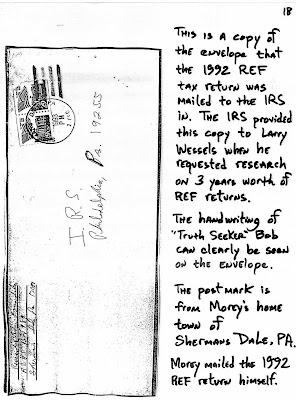 1B
THIS IS A COPY OF
THE ENVELOPE THAT
THE 1992 REF
TAX RETURN WAS
MAILED TO THE IRS
IN. THE IRS PROVIDED
THIS COPY TO LARRY
WESSELS WHEN HE
REQUESTED RESEARCH
ON 3 YEARS WORTH OF
REF RETURNS.
THE HANDWRITING OF
"TRUTH SEEKER" BOB
CAN CLEARLY BE SEEN
ON THE ENVELOPE.
THE POSTMARK IS
FROM MOREY'S HOME
TOWN OF
SHERMANS DALE, PA.
MOREY MAILED THE 1992
REF RETURN HIMSELF.
PM
I.R.S.
Philadelphia, Pa. 19255